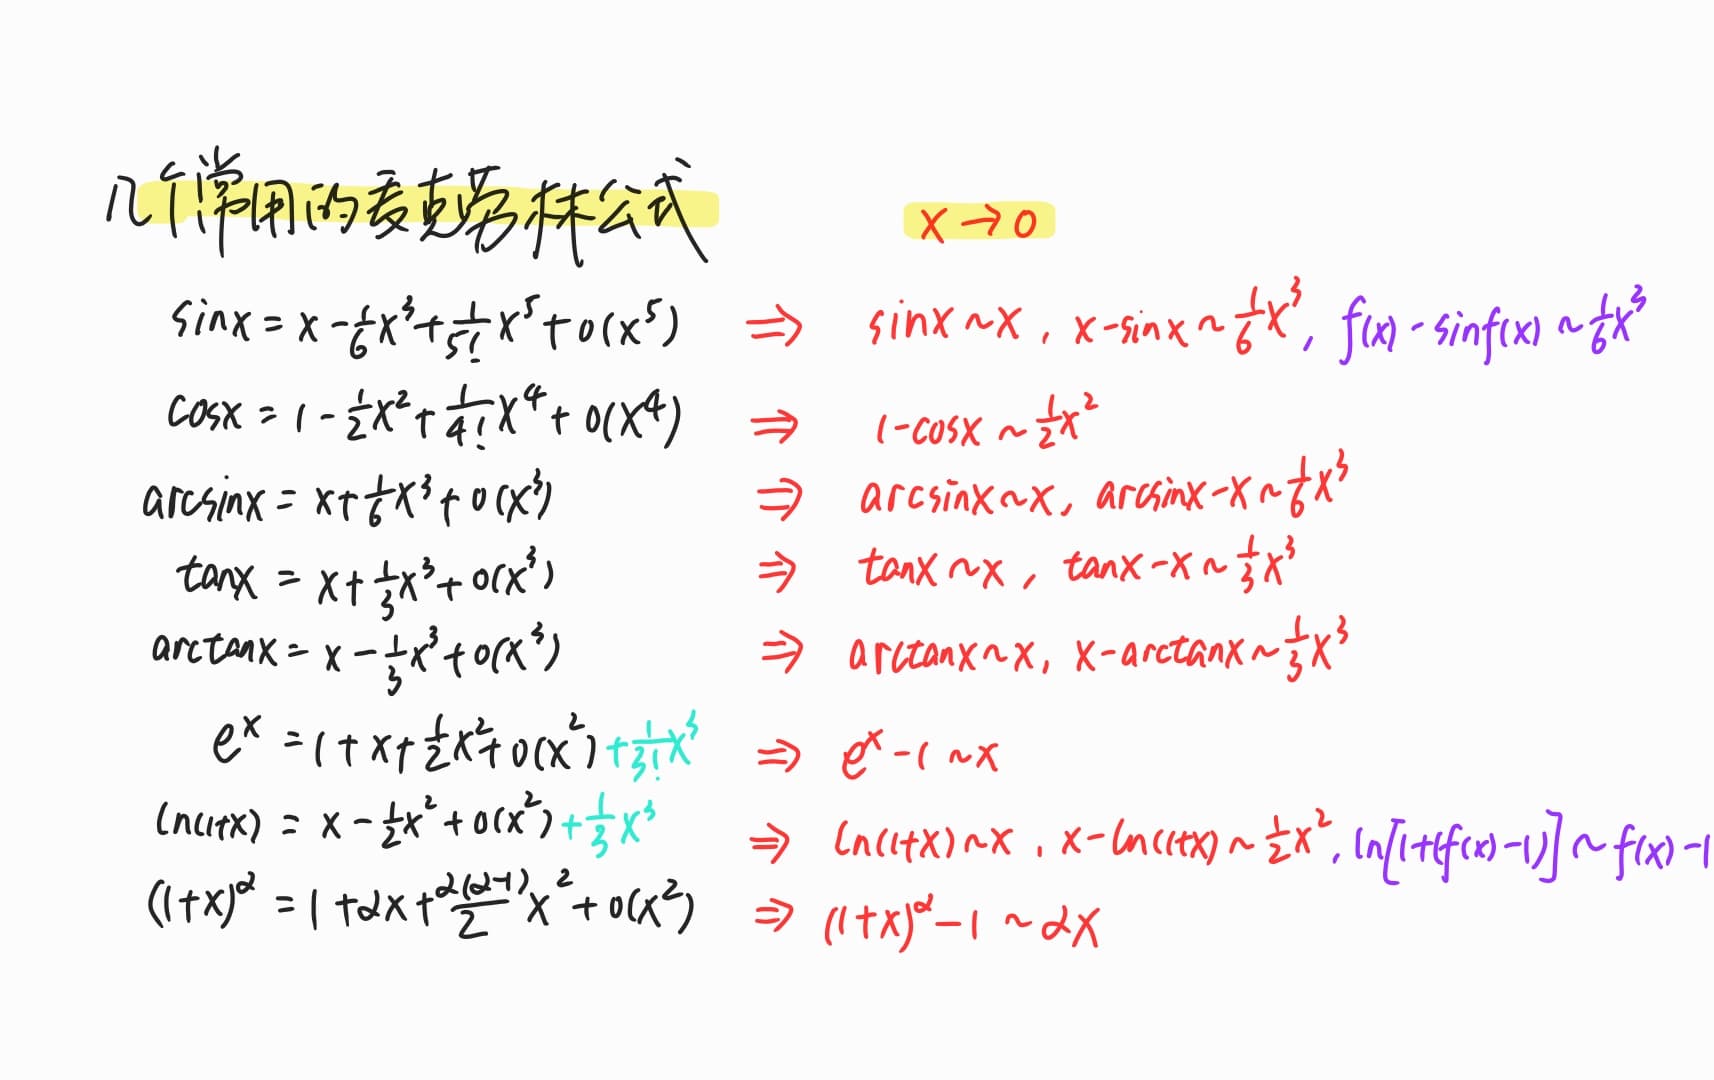 几个常用的麦克劳林公式 x→0
sinx = x - 1/6 x³ + 1/5! x⁵ + o(x⁵) ⇒ sinx ~ x, x - sinx ~ 1/6 x³, f(x) - sinf(x) ~ 1/6 x³
cosx = 1 - 1/2 x² + 1/4! x⁴ + o(x⁴) ⇒ 1 - cosx ~ 1/2 x²
arcsinx = x + 1/6 x³ + o(x³) ⇒ arcsinx ~ x, arcsinx - x ~ 1/6 x³
tanx = x + 1/3 x³ + o(x³) ⇒ tanx ~ x, tanx - x ~ 1/3 x³
arctanx = x - 1/3 x³ + o(x³) ⇒ arctanx ~ x, x - arctanx ~ 1/3 x³
eˣ = 1 + x + 1/2 x² + o(x²) + 1/3! x³ ⇒ eˣ - 1 ~ x
ln(1+x) = x - 1/2 x² + o(x²) + 1/3 x³ ⇒ ln(1+x) ~ x, x - ln(1+x) ~ 1/2 x², ln[1+(f(x)-1)] ~ f(x)-1
(1+x)^α = 1 + αx + α(α-1)/2 x² + o(x²) ⇒ (1+x)^α - 1 ~ αx